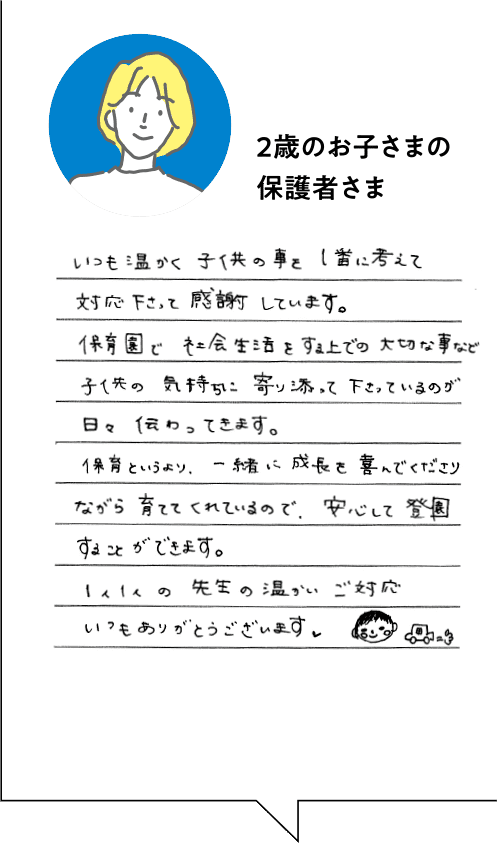 2歳のお子さまの
保護者さま
いつも温かく 子供の事を 1番に考えて
対応下さって 感謝しています。
保育園で 社会生活をする上での大切な事など
子供の 気持ちに 寄り添って 下さっているのが
日々 伝わってきます。
保育というより、一緒に 成長を 喜んでくださり
ながら 育ててくれているので、安心して 登園
することができます。
1人1人の 先生の温かい ご対応
いつもありがとうございます